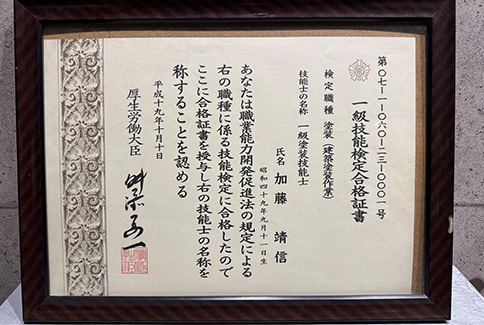 第〇七-一-一〇六〇-二三-〇〇〇一号
一級技能検定合格証書
検定職種 塗装(建築塗装作業)
技能士の名称 一級塗装技能士
氏名 加藤 靖信
昭和四十九年九月十一日生
あなたは職業能力開発促進法の規定による
右の職種に係る技能検定に合格したので
ここに合格証書を授与し右の技能士の名称を
称することを認める
平成十九年十月十日
厚生労働大臣